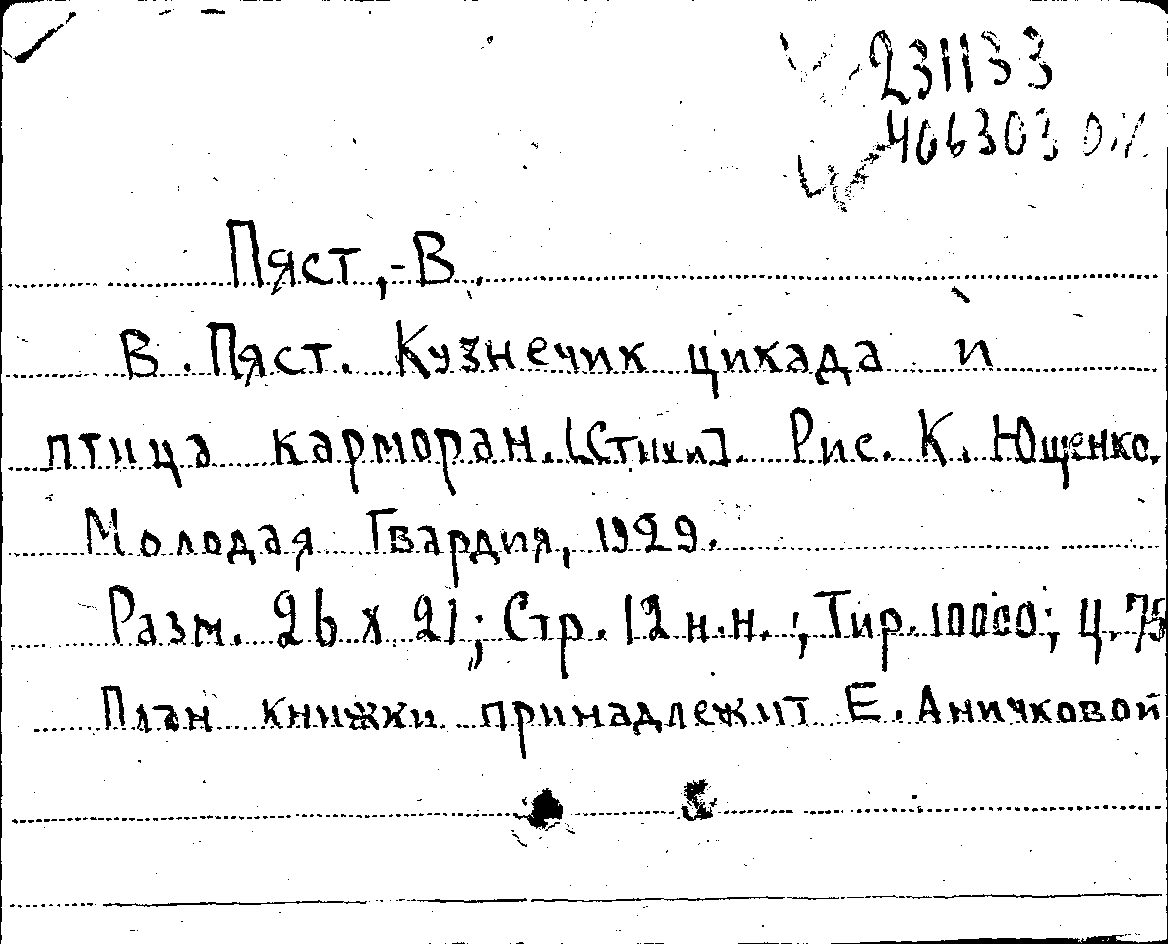 231133
406303
Пяст,-В.
В. Пяст. Кузнечик цикада и
птица карморан. [Стихи]. Рис. К. Ющенко.
Молодая Гвардия, 1929.
Разм. 26 х 21; Стр. 12 н.н.; Тир. 10000; Ц. 75
План книжки принадлежит Е. Аничковой